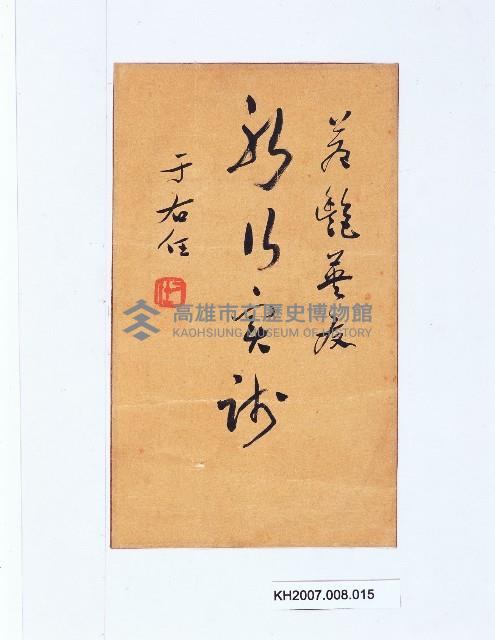 友
躬行實踐
于右任
高雄市立歷史博物館
KAOHSIUNG MUSEUM OF HISTORY
KH2007.008.015